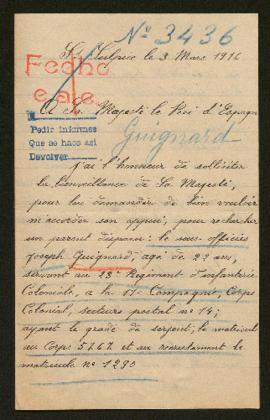 No 3436
St Sulpice le 3 Mars 1916
Fecho
A Sa Majesté le Roi d'Espagne
Pedir informes
Que se hace así
Devolver
Guignard
J'ai l'honneur de solliciter
la bienveillance de Sa Majesté,
pour lui demander de bien vouloir
m'accorder son appui, pour rechercher
un parent disparu: le sous-officier
Joseph Guignard, agé de 22 ans,
servant au 22e Régiment d'infanterie
Coloniale, a la 11e Compagnie, Corps
Colonial, secteur postal no 14;
ayant le grade de sergent; le matricule
au Corps 5267 et au recrutement le
matricule no 1290